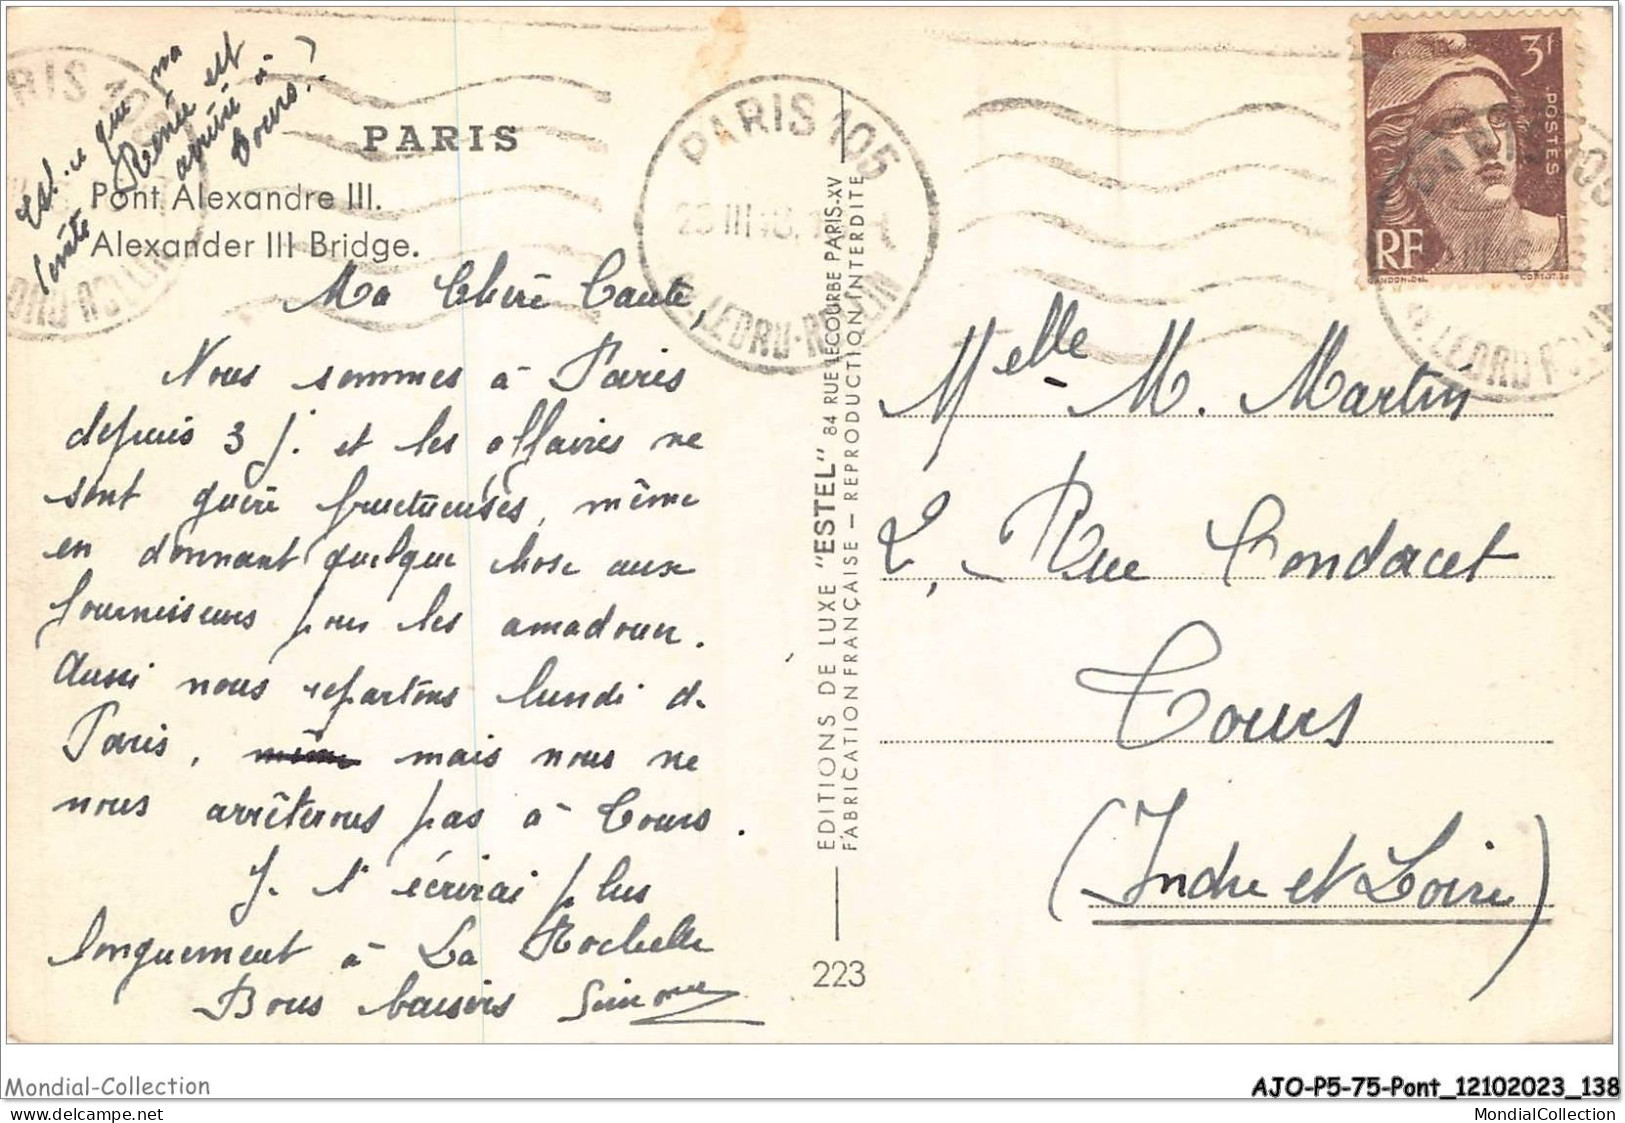 Est-ce que ma
tante Renée est
arrivée à
Tours ?
PARIS
Pont Alexandre III.
Alexander III Bridge.
Ma Chère Tante,
Nous sommes à Paris
depuis 3 j. et les affaires ne
sont guère fructueuses, même
en donnant quelque chose aux
fournisseurs pour les amadouer.
Aussi nous repartons lundi de
Paris, même mais nous ne
nous arrêterons pas à Tours.
Je t'écrirai plus
longuement à La Rochelle
Bons baisers Simone
PARIS 105
R. LEDRU-ROLLIN
EDITIONS DE LUXE "ESTEL" 84 RUE LECOURBE PARIS-XV
FABRICATION FRANÇAISE — REPRODUCTION INTERDITE
223
3f
POSTES
RF
GANDON.DEL
Melle M. Martin
2, Rue Condacet
Tours
(Indre et Loire)
Mondial-Collection
AJO-P5-75-Pont_12102023_138
https://www.delcampe.net
MondialCollection